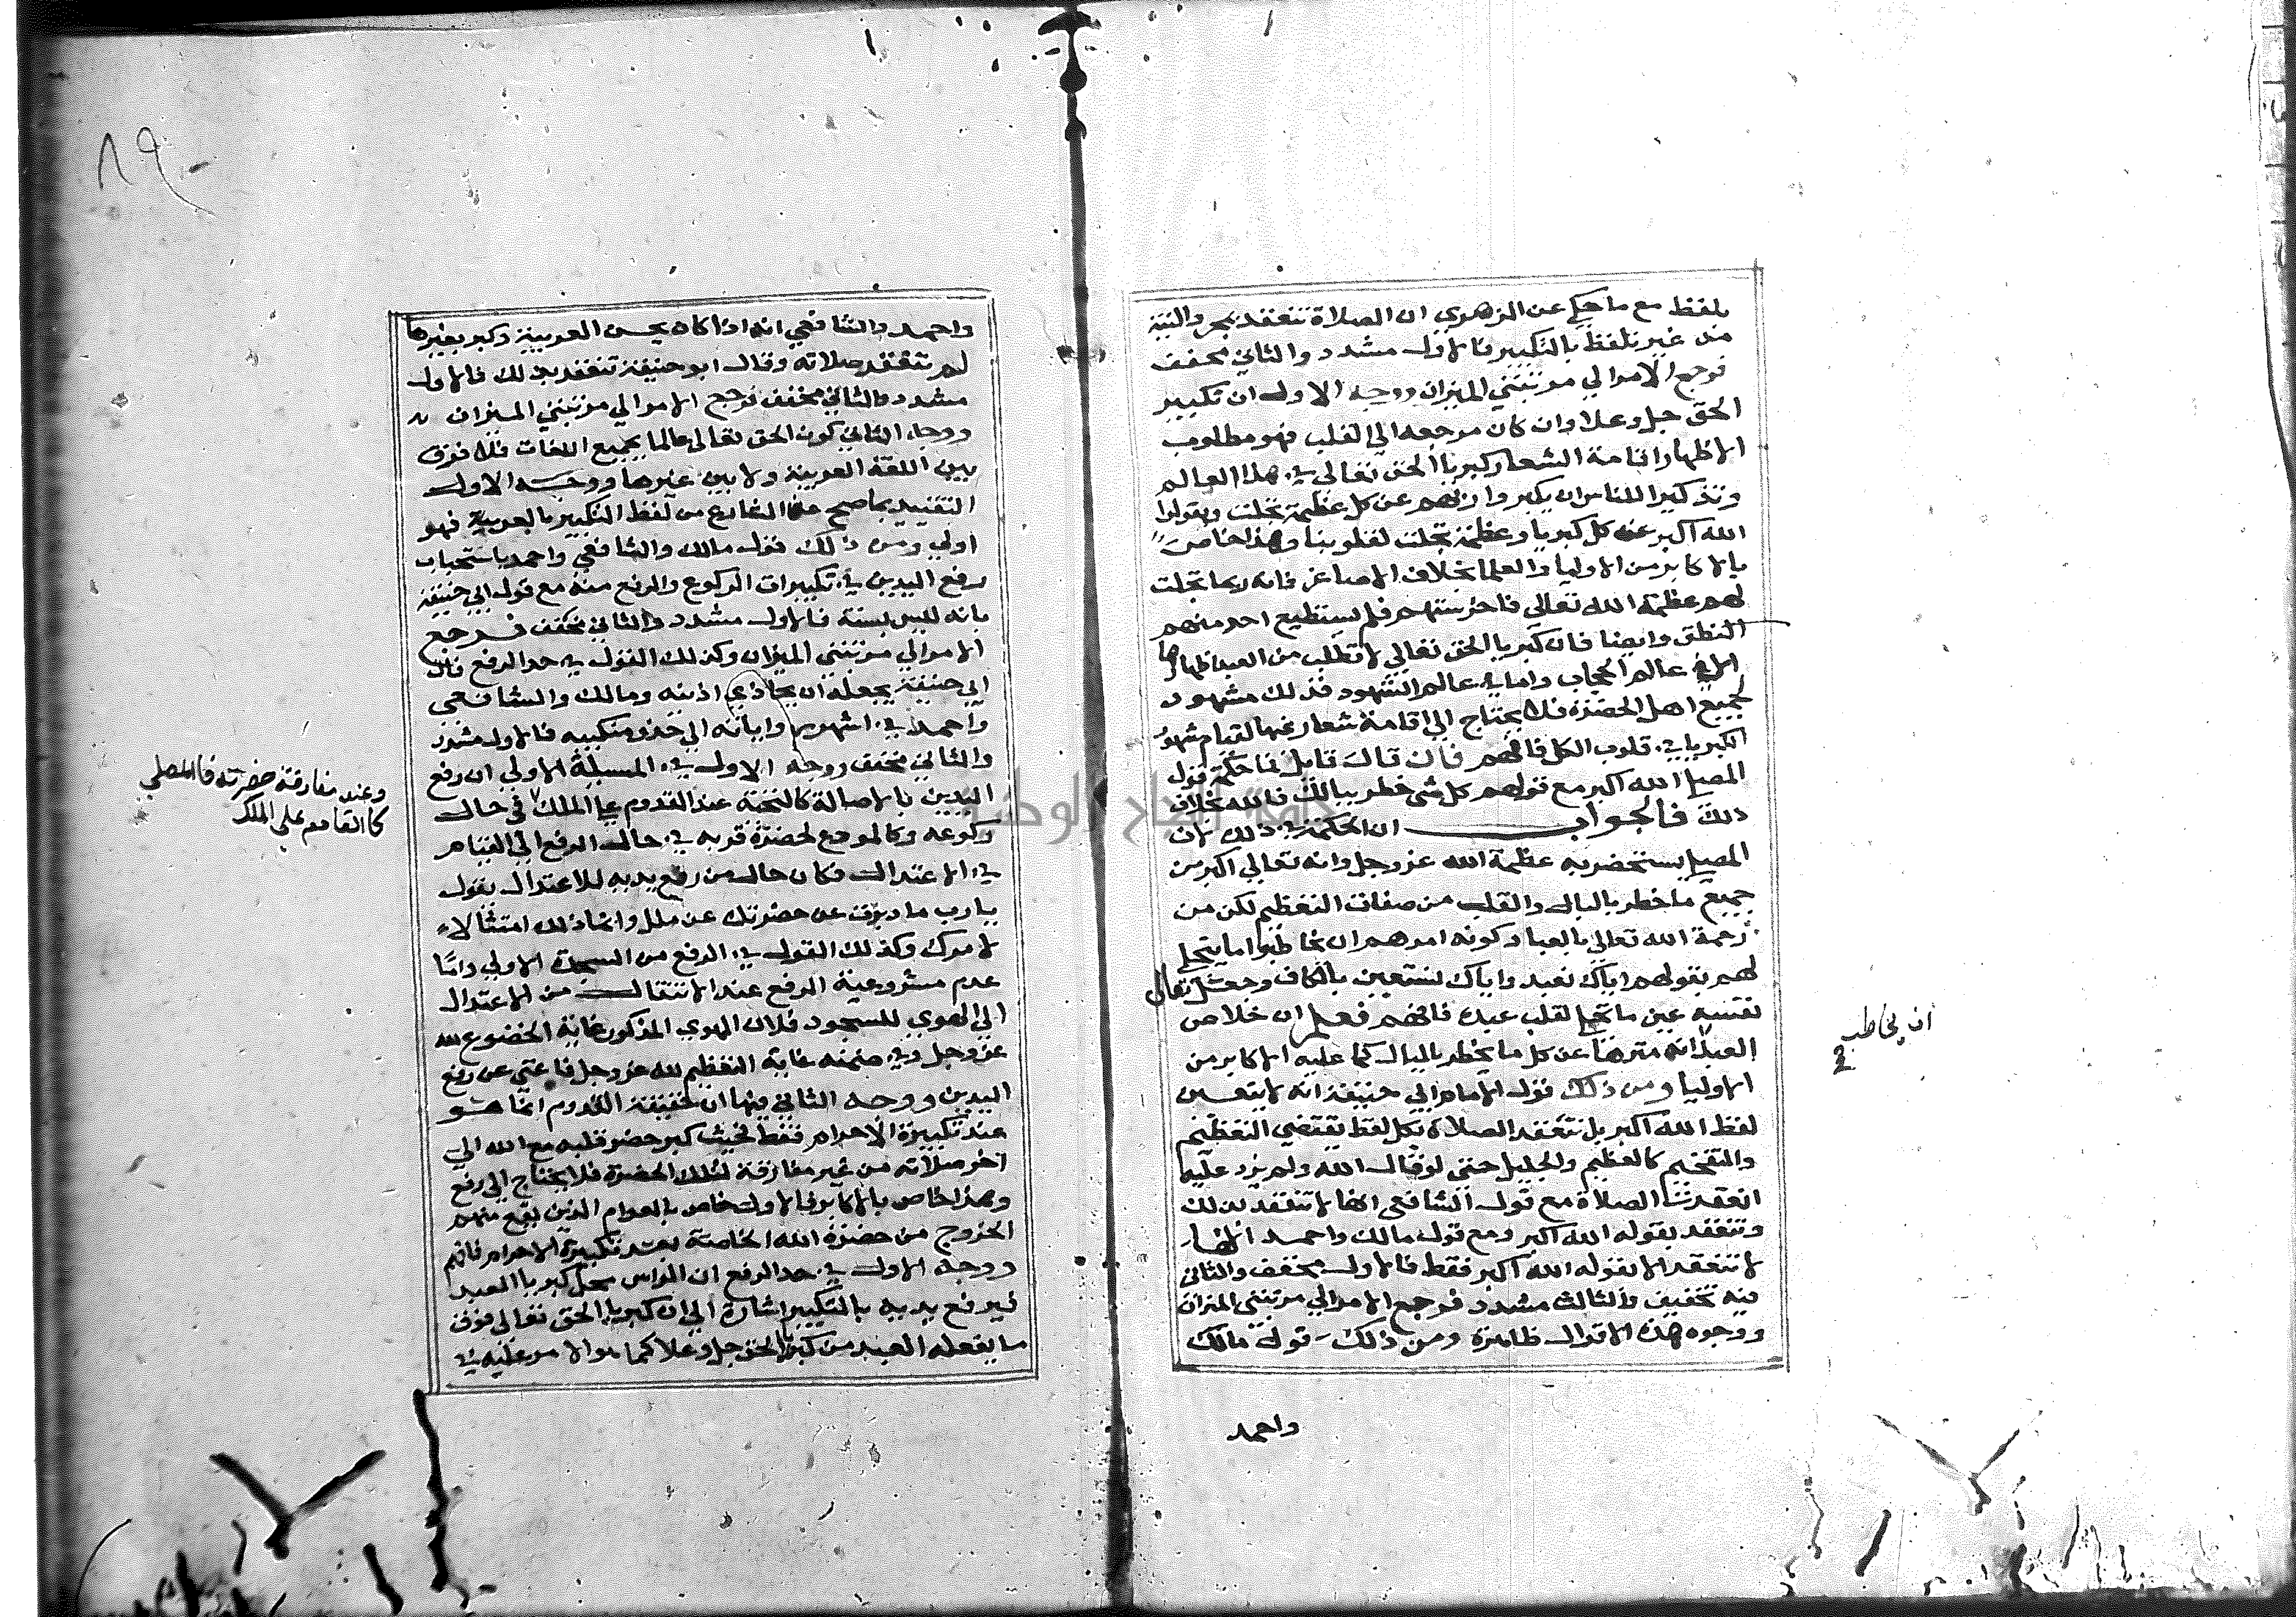 بلفظ مع ما حكي عن الزهري ان الصلاة تنعقد بمجرد النية
من غير تلفظ بالتكبير فالاول مشدد والثاني مخفف
فرجع الامر الي مرتبتي الميزان ووجه الاول ان تكبير
الحق جل وعلا وان كان مرجعه الي القلب فهو مطلوب
الاظهار اقامة لشعار كبريا الحق تعالي في هذا العالم
وتذكيرا للناس ان يكبروا ربهم عن كل عظمة تجلت ويقولوا
الله اكبر عن كل كبريا وعظمة تجلت لقلوبنا وهذا خاص
بالاكابر من الاوليا والعلما بخلاف الاصاغر فانه ربما تجلت
لهم عظمة الله تعالي فاخرستهم فلم يستطيع احد منهم
النطق وايضا فان كبريا الحق تعالي لا تطلب من العبد اظهارها
الا في عالم الحجاب واما في عالم الشهود فذلك مشهود
لجميع اهل الحضرة فلا يحتاج الي اقامة شعار فيها لقيام شهود
الكبريا في قلوب الكل فافهم فان قال قايل فما حكمة قول
المصلي الله اكبر مع قولهم كل شي خطر ببالك فالله بخلاف
ذلك فالجواب ان الحكمة في ذلك لان
المصلي يستحضر به عظمة الله عز وجل وانه تعالي اكبر من
جميع ما خطر بالبال والقلب من صفات التعظيم لكن من
رحمة الله تعالي بالعباد كونه امرهم ان يخاطبوا ما يتجلي
لهم بقولهم اياك نعبد واياك نستعين بالكاف وجعل تعالي
نفسه عين ما تجلي لقلب عبده فافهم فعلم ان خلاص
العبد انه منزها عن كل ما يخطر بالبال كما عليه الاكابر من
الاوليا ومن ذلك قول الامام ابي حنيفة انه لا يتعين
لفظ الله اكبر بل تنعقد الصلاة بكل لفظ يقتضي التعظيم
والتفخيم كالعظيم والجليل حتي لو قال الله ولم يزد عليه
انعقدت الصلاة مع قول الشافعي انها لا تنعقد بذلك
وتنعقد بقوله الله اكبر ومع قول مالك واحمد انها
لا تنعقد الا بقوله الله اكبر فقط فالاول مخفف والثاني
فيه تخفيف والثالث مشدد فرجع الامر الي مرتبتي الميزان
ووجوه هذه الاقوال ظاهرة ومن ذلك قول مالك
واحمد
ان يخاطب
في
٨٩
واحمد والشافعي انه اذا كان يحسن العربية وكبر بغيرها
لم تنعقد صلاته وقال ابو حنيفة تنعقد بذلك فالاول
مشدد والثاني مخفف فرجع الامر الي مرتبتي الميزان
ووجه الثاني كون الحق تعالي عالما بجميع اللغات فلا فرق
بين اللغة العربية ولا بين غيرها ووجه الاول
التقييد بما صح عن الشارع من لفظ التكبير بالعربية فهو
اولي ومن ذلك قول مالك والشافعي واحمد باستحباب
رفع اليدين في تكبيرات الركوع والرفع منه مع قول ابي حنيفة
بانه ليس بسنة فالاول مشدد والثاني مخفف فرجع
الامر الي مرتبتي الميزان وكذلك القول في حد الرفع فان
ابي حنيفة يجعله ان يحاذي اذنيه ومالك والشافعي
واحمد في اشهر رواياته الي حذو منكبيه فالاول مشدد
والثاني مخفف ووجه الاول في المسيلة الاولي ان رفع
اليدين بالاصالة كالتحية عند القدوم علي الملك في حال
ركوعه وكالمودع لحضرة قربه في حال الرفع الي القيام
في الاعتدال فكان حال من رفع يديه للاعتدال يقول
يا رب ما دبرت عن حضرتك عن ملل وانما ذلك امتثالا
لامرك وكذلك القول في الرفع من السجدة الاولي واما
عدم مشروعية الرفع عند الانتقال من الاعتدال
الي الهوي للسجود فلان الهوي المذكور غاية الخضوع لله
عز وجل وفي ضمنه غاية التعظيم لله عز وجل فاغني عن رفع
اليدين ووجه الثاني فيها ان حقيقة القدوم انما هو
عند تكبيرة الاحرام فقط فحيث كبر حضر قلبه مع الله الي
اخر صلاته من غير مفارقة لتلك الحضرة فلا يحتاج الي رفع
وهذا خاص بالاكابر فالاول خاص بالعوام الذين يقع منهم
الخروج من حضرة الله الخاصة بعد تكبيرة الاحرام فافهم
ووجه الاول في حد الرفع ان الراس محل كبريا العبد
فيرفع يديه بالتكبير اشارة الي ان كبريا الحق تعالي فوق
ما يفعله العبد من كبريا الحق جل وعلا كما هو الامر عليه في
وعند مفارقة حضرته فالمصلي
كالقادم علي الملك